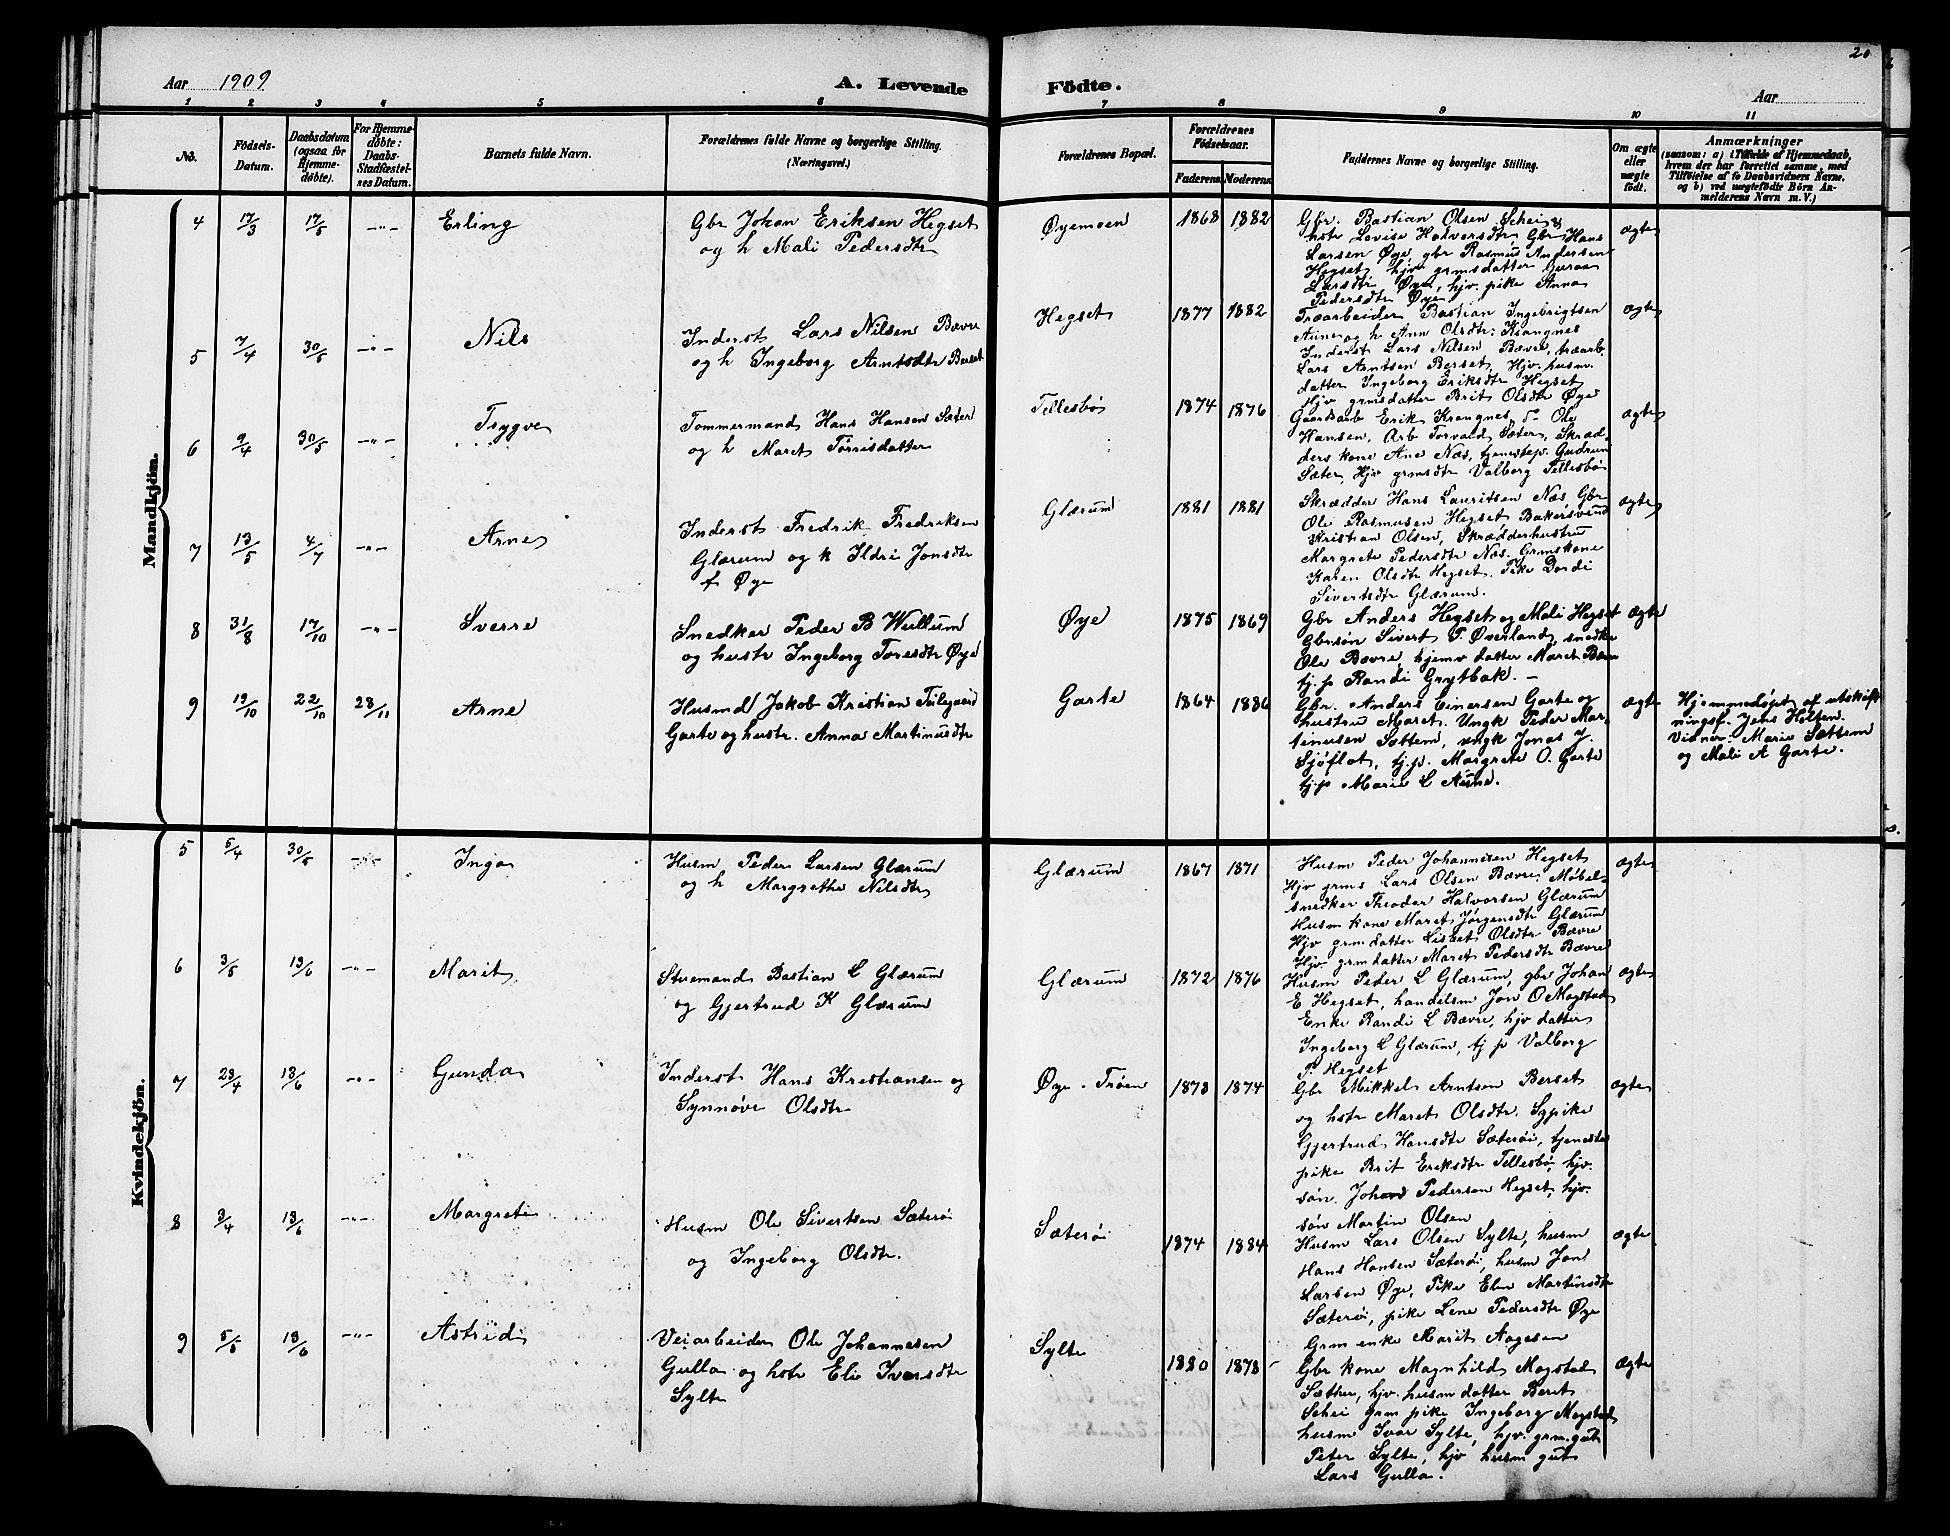 20
Aar 1909
A. Levende
Födte.
Aar
1 2 3 4 5 6 7 8 9 10 11
No.
Födsels-Datum.
Daabsdatum (ogsaa för Hjemme-döbte).
For Hjemme-döbte: Daabs-Stadfæstel-ses Datum.
Barnets fulde Navn.
Forældrenes fulde Navne og borgerlige Stilling. (Næringsvei.)
Forældrenes Bopæl.
Forældrenes Födselsaar.
Faderens.
Moderens.
Faddernes Navne og borgerlige Stilling.
Om ægte eller uægte födt.
Anmærkninger
(saasom: a) i Tilfælde af Hjemmedaab,
hvem der har forrettet samme, med
Tilföielse af to Daabsvidners Navne,
og b) ved uægtefödte Börn An-
melderens Navn m. V.)
Mandkjön.
4 17/3 17/5 -"- Erling
Gbr Johan Eriksen Hegset
og h Mali Pedersdtr
Øyemoen 1868 1882
Gbr. Bastian Olsen Schei og
hstr Lovise Halvorsdtr, Gbr Hans
Larsen Øye, gbr Rasmus Andersen
Hegset, hjv grmsdatter Guroa
Larsdtr Øye, hjv. pike Anna
Pedersdtr Øye
ægte
5 7/4 30/5 -"- Nils
Inderst Lars Nilsen Bævre
og h Ingeborg Arntsdtr Berset
Hegset 1877 1882
Træarbeider Bastian Ingebrigtsen
Aune og h Ann Olsdtr: Krangnes
Inderst Lars Nilsen Bævre, træarb.
Lars Arntsen Berset, Hjv. husm.
datter Ingeborg Eriksdtr Hegset
Hjv grmsdatter Brit Olsdtr Øye
ægte
6 9/4 30/5 -"- Trygve
Tømmermand Hans Hansen Sæter
og h Maret Tørrisdatter
Tellesbø 1874 1876
Gaardarb Erik Krangnes, do Ole
Hansen, Arb Torvald Sæter, Skræd-
ders kone Ane Næs, tjenestep. Gudrun
Sæter, Hjv grmsdtr Valborg Tellesbø
ægte
7 13/5 4/7 -"- Arne
Inderst Fredrik Fredriksen
Glærum og k Ildri Jonsdtr
f Øye
Glærum 1881 1881
Skrædder Hans Lauritsen Næs, Gbr
Ole Rasmusen Hegset, Bakersvend
Kristian Olsen, Skrædderhustru
Margrete Pedersdtr Næs. Grmskone
Karen Olsdtr Hegset. Pike Dordi
Sivertsdtr Glærum.
ægte
8 31/8 17/10 -"- Sverre
Snedker Peder B Wullum
og hustr Ingeborg Toresdtr Øye
Øye 1875 1869
Gbr Anders Hegset og Mali Hegset
Gbrsøn Sivert P. Øverland, snedker
Ole Bævre, hjemv datter Maret Bævre
tj.p Randi Grytbak. —
ægte
9 19/10 22/10 28/11 Arne
Husmd Jakob Kristian
Garte og hustr. Anna Martinusdtr
Garte 1864 1886
Gbr. Anders Einersen Garte og
hustru Maret. Ungk Peder Mar-
tinusen Sættem, ungk Jonas J.
Sjøflot, tj.p. Margrete O. Garte
tj.p Marie L Aune.
ægte
Hjemmedøpt af utskift-
ningsf. Jens Holten.
Vidner: Marie Sættem
og Mali A Garte.
Kvindekjön.
5 5/4 30/5 -"- Inga
Husm Peder Larsen Glærum
og h Margrethe Nilsdtr
Glærum 1867 1871
Husm Peder Johannesen Hegset
Hjv grms Lars Olsen Bævre: Møbel-
snedker Theodor Halvorsen Glærum
Husm kone Maret Jørgensdtr Glærum
Hjv grmdatter Lisbet Olsdtr Bævre
Hjv. grmdatter Maret Pedersdtr Bævre
ægte
6 3/5 13/6 -"- Marit
Struemand Bastian L Glærum
og Gjertrud K Glærum
Glærum 1872 1876
Husm Peder L Glærum, gbr Johan
E Hegset, handelsm Jon O Magstad
Enke Randi L Bævre, hjv datter
Ingeborg L Glærum, tj p Valborg
P. Hegset
ægte
7 23/4 13/6 -"- Gunda
Inderst Hans Kristiansen og
Synnøve Olsdtr
Øye-Trøen 1873 1874
Gbr Mikkel Arntsen Berset
og hstr Maret Olsdtr. Sypike
Gjertrud Hansdtr Sæterøi, tjeneste
pike Brit Eriksdtr Tellesbø, hjv.
søn. Johan Pedersen Hegset, hjv.
søn Martin Olsen
ægte
8 3/4 13/6 -"- Margrete
Husm Ole Sivertsen Sæterøi
og Ingeborg Olsdtr.
Sæterøi 1874 1884
Husm Lars Olsen Sylte, husm
Hans Hansen Sæterøi, husm Jon
Larsen Øye, Pike Elen Martinsdtr
Sæterøi, pike Lene Pedersdtr Øye
Grm enke Marit Aagesen
ægte
9 5/5 13/6 -"- Astrid
Veiarbeider Ole Johannesen
Gulla og hstr Eli Iversdtr
Sylte
Sylte 1880 1878
Gbr kone Magnhild Magstad
Sæther, hjv. husm datter Beret
Schei grm pike Ingeborg Magstad
husm Ivar Sylte, hjv. grm.gut
Peter Sylte, hjv husm gut
Lars Gulla.
ægte